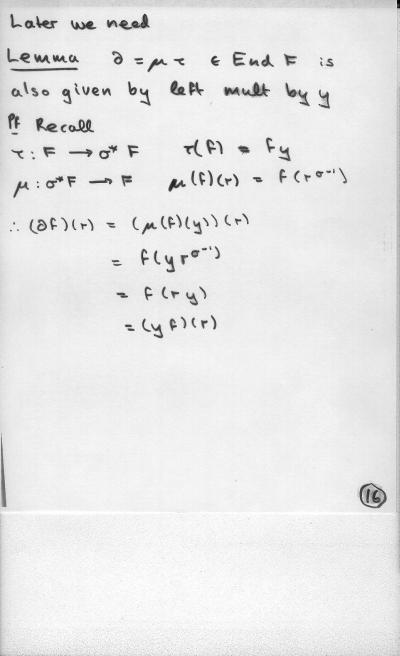 Later we need
Lemma ∂ = μτ ∈ End F is
also given by left mult by y
Pf Recall
τ : F → σ*F τ(f) = fy
μ : σ*F → F μ(f)(r) = f(r^{σ^{-1}})
∴ (∂f)(r) = (μ(f)(y))(r)
= f(y r^{σ^{-1}})
= f(r y)
= (y f)(r)
16